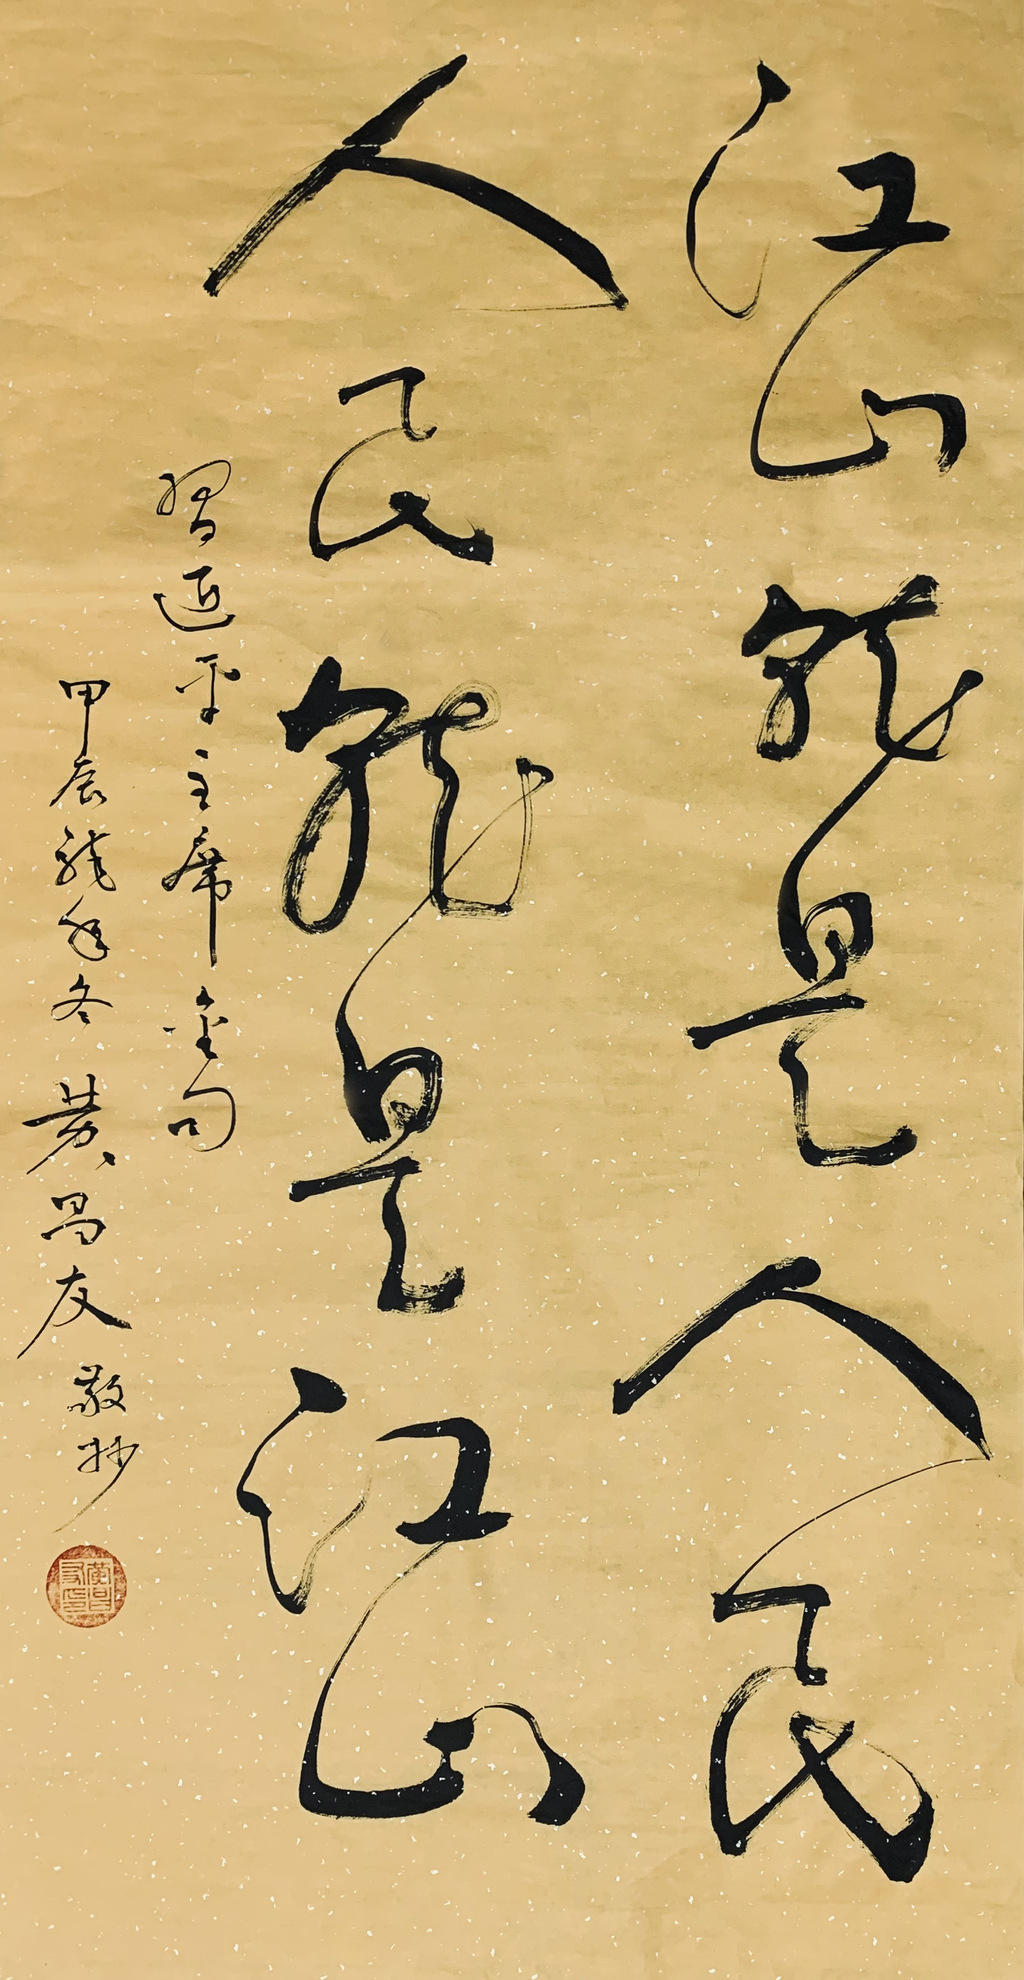 江山就是人民
人民就是江山
习近平主席金句
甲辰龙年冬 黄昌友敬抄
黄昌友印